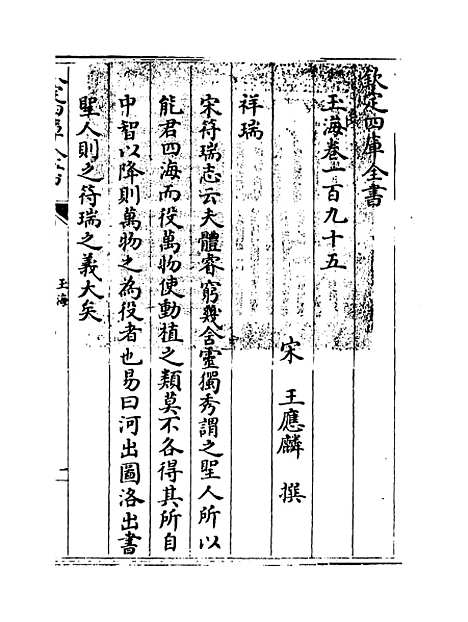 欽定四庫全書
玉海卷一百九十五
宋 王應麟 撰
祥瑞
宋符瑞志云夫體睿窮幾含靈獨秀謂之聖人所以
能君四海而役萬物使動植之類莫不各得其所自
中智以降則萬物之為役者也易曰河出圖洛出書
聖人則之符瑞之義大矣
玉海